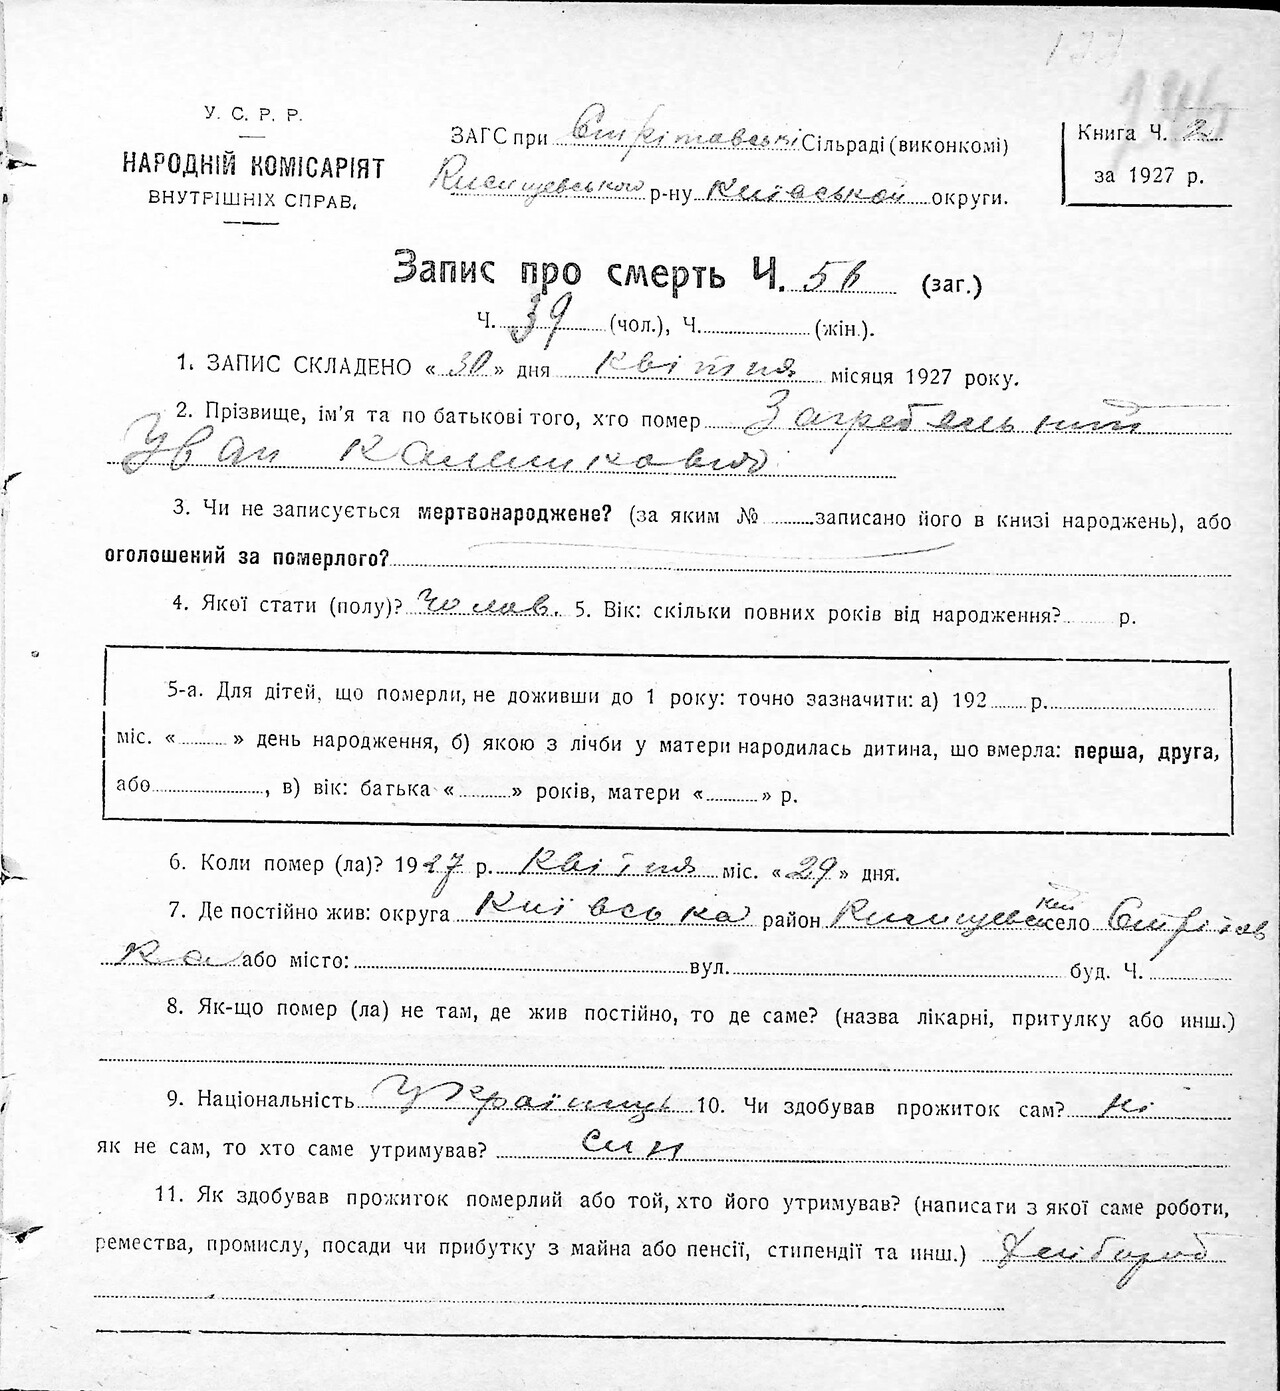 177
146
У. С. Р. Р.
НАРОДНІЙ КОМІСАРІЯТ
ВНУТРІШНІХ СПРАВ.
ЗАГС при Стрітавські Сільраді (виконкомі)
Ржищевського р-ну Київської округи.
Книга Ч. 2
за 1927 р.
Запис про смерть Ч. 56 (заг.)
Ч. 39 (чол.), Ч. (жін.).
1. ЗАПИС СКЛАДЕНО « 30 » дня квітня місяця 1927 року.
2. Прізвище, ім'я та по батькові того, хто помер Загребельний
Уван Калениковий
3. Чи не записується мертвонароджене? (за яким № записано його в книзі народжень), або
оголошений за померлого?
4. Якої стати (полу)? Чолов. 5. Вік: скільки повних років від народження? р.
5-а. Для дітей, що померли, не доживши до 1 року: точно зазначити: а) 192 р.
міс. « » день народження, б) якою з лічби у матери народилась дитина, що вмерла: перша, друга,
або , в) вік: батька « » років, матери « » р.
6. Коли помер (ла)? 1927 р. Квітня міс. «29» дня.
7. Де постійно жив: округа Київська район Ржищевский село Стрітов
ка або місто: вул. буд. Ч.
8. Як-що помер (ла) не там, де жив постійно, то де саме? (назва лікарні, притулку або инш.)
9. Національність Українець 10. Чи здобував прожиток сам? ні
як не сам, то хто саме утримував? Син
11. Як здобував прожиток померлий або той, хто його утримував? (написати з якої саме роботи,
ремества, промислу, посади чи прибутку з майна або пенсії, стипендії та инш.) Хлібороб